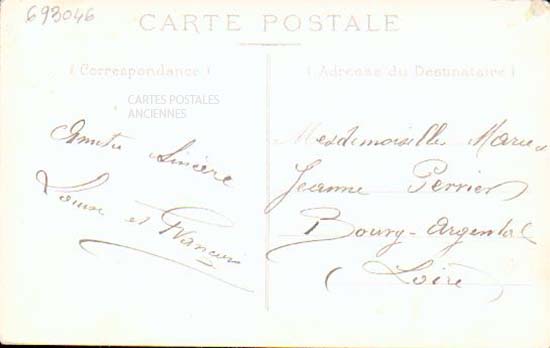 693046
CARTE POSTALE
(Correspondance)
(Adresse du Destinataire)
CARTES POSTALES
ANCIENNES
Amitié Sincère
Louise et
Mesdemoiselles Marie
Jeanne Perrier
Bourg-Argental
(Loire)